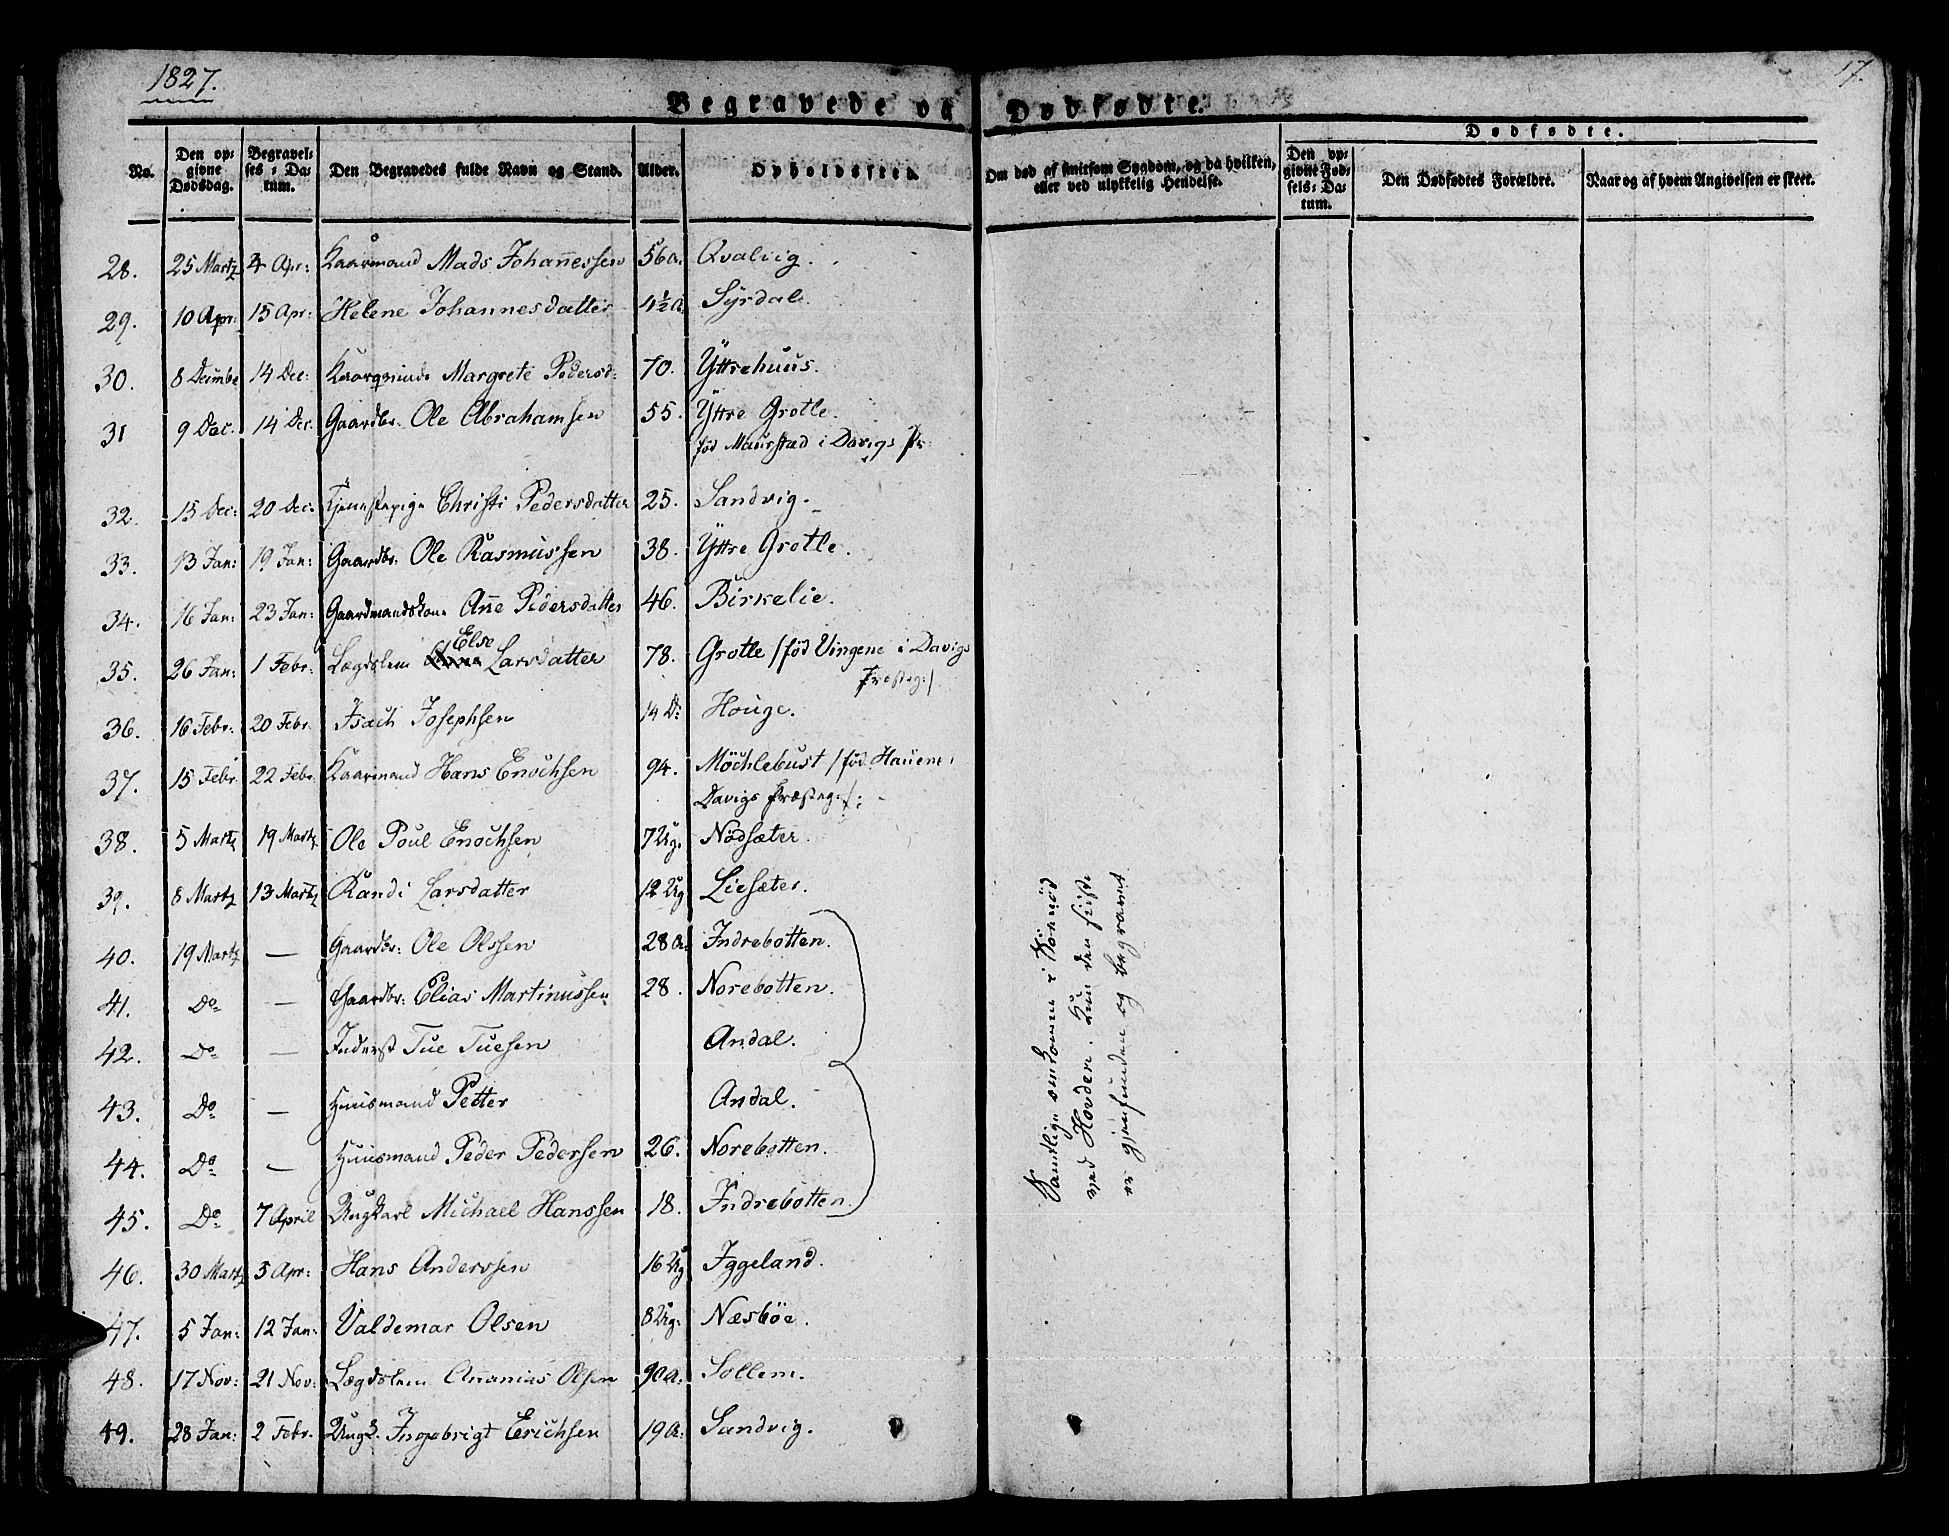 1827.
17.
Begravede og Dødfødte.
No.
Den opgivne Dødsdag.
Begravelses-Datum.
Den Begravedes fulde Navn og Stand.
Alder.
Opholdssted.
Om død af smitsom Sygdom, og da hvilken, eller ved ulykkelig Hendelse.
Dødfødte.
Den opgivne Fødsels-Datum.
Den Dødfødtes Forældre.
Naar og af hvem Angivelsen er skeet.
28. 25 Martz 4 Apr: Kaarmand Mads Johannessen 56 a. Qvalvig.
29. 10 Apr: 15 Apr: Helene Johannesdatter 4½ a. Syrdal.
30. 8 Decmbr 14 Dec: Margrete Pedersd: 70. Yttrehuus.
31 9 Dec: 14 Dec. Gaardbr. Ole Abrahamsen 55. Yttre Grotle.
fød Maurstad i Davigs Pr:
32. 15 Dec: 20 Dec. Tjenestepige Christi Pedersdatter 25. Sandvig.
33. 13 Jan: 19 Jan: Gaardbr. Ole Rasmussen 38. Yttre Grotle.
34. 16 Jan: 23 Jan: Gaardmandskone Anne Pedersdatter 46. Birkelie.
35. 26 Jan: 1 Febr: Lægdslem Else Larsdatter 78. Grotle /fød Vingene i Davigs
Præsteg:/
36. 16 Febr. 20 Febr. Isach Josephsen 14 D: Houge.
37. 15 Febr. 22 Febr. Kaarmand Hans Enochsen 94. Möchlebust /fød Hauene i
Davigs Præsteg:/
38. 5 Martz 19 Martz Ole Poul Enochsen 7 Ug. Nødsæter.
39. 8 Martz 13 Martz Randi Larsdatter 12 Ug Liesæter.
40. 19 Martz — Gaardbr: Ole Olssen 28 a. Indrebotten.
41. Do — Gaardbr: Elias Martinussen 28. Norebotten.
42. Do — Inderst Tue Tuesen Andal.
43. Do — Huusmand Petter Andal.
44. Do — Huusmand Peder Pedersen 26. Norebotten.
45. Do 7 April Ungkarl Michael Hanssen 18. Indrebotten.
Samtlige omkomne i Sønød
ved Hovden. Kun den sidste
er gjenfunden og begravet
46. 30 Martz 5 Apr: Hans Anderssen 16 Ug Iggeland.
47. 5 Jan: 12 Jan: Valdemar Olsen 8 Ug: Næsbøe.
48. 17 Nov: 21 Nov: Lægdslem Ananias Olsen 90 a. Sollem.
49. 28 Jan: 2 Febr. Ungk. Ingebrigt Erichsen 19 a: Sandvig.